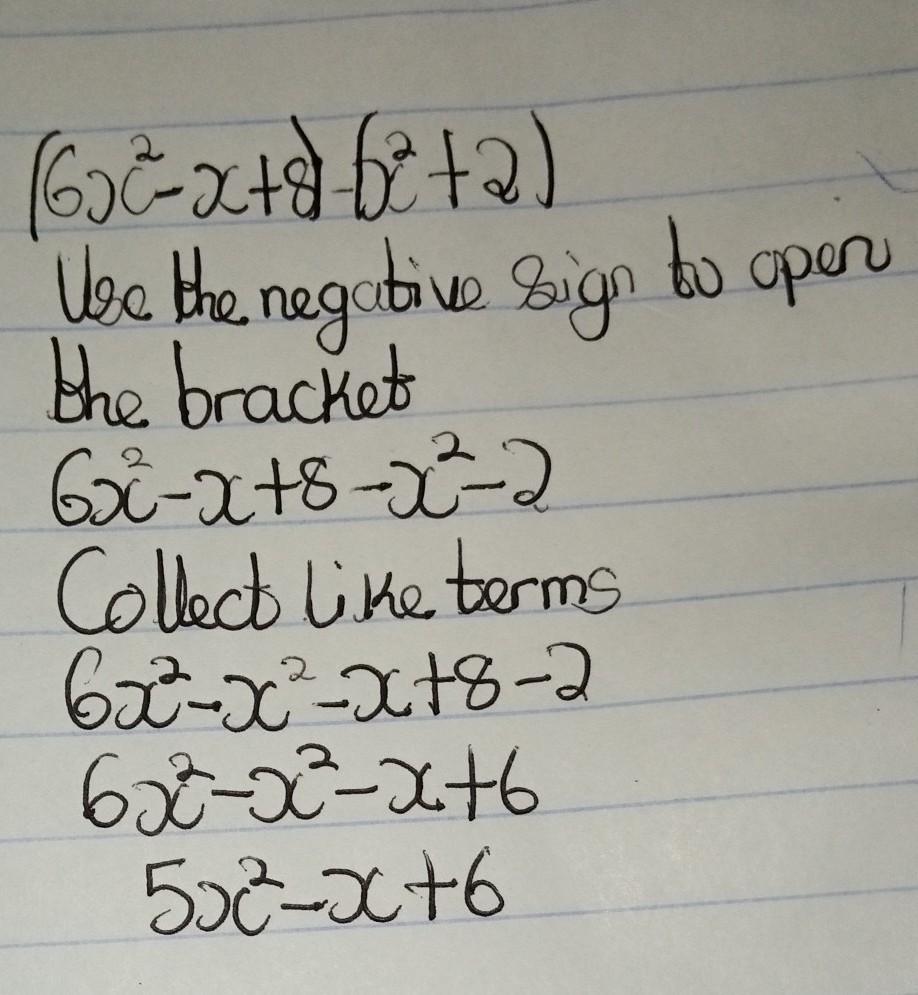 (6x²-x+8)-(x²+2)
Use the negative sign to open
the bracket
6x²-x+8-x²-2
Collect like terms
6x²-x²-x+8-2
6x²-x²-x+6
5x²-x+6